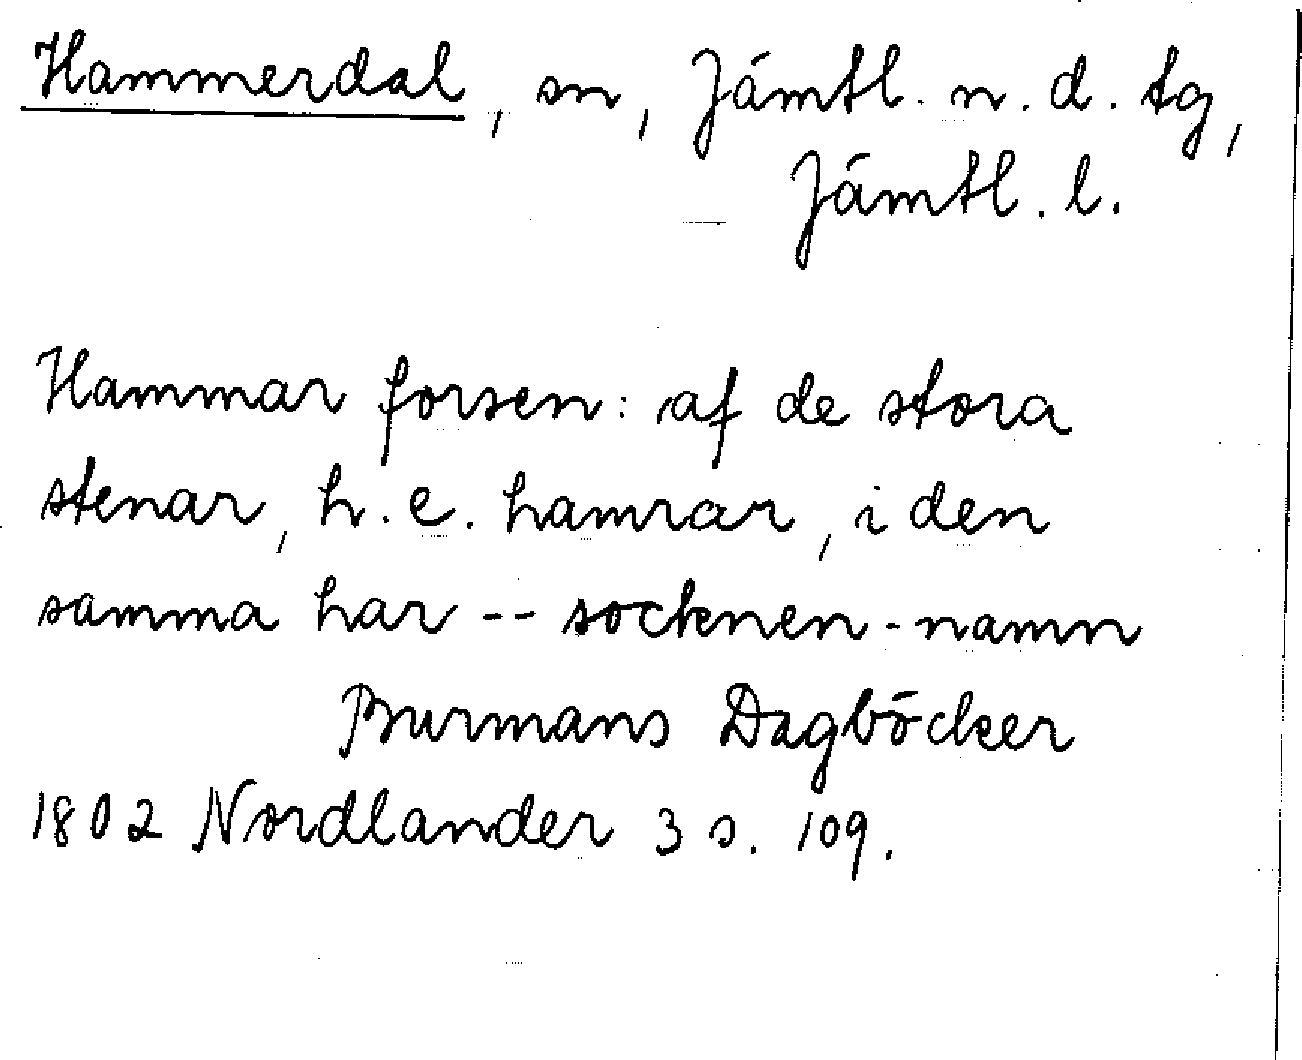 Hammerdal, sn, Jämtl. n. d. tg,
Jämtl. l.
Hammar forsen: af de stora
stenar, h. e. hamrar, i den
samma har -- socknen-namn
Burmans Dagböcker
1802 Nordlander 3 s. 109.